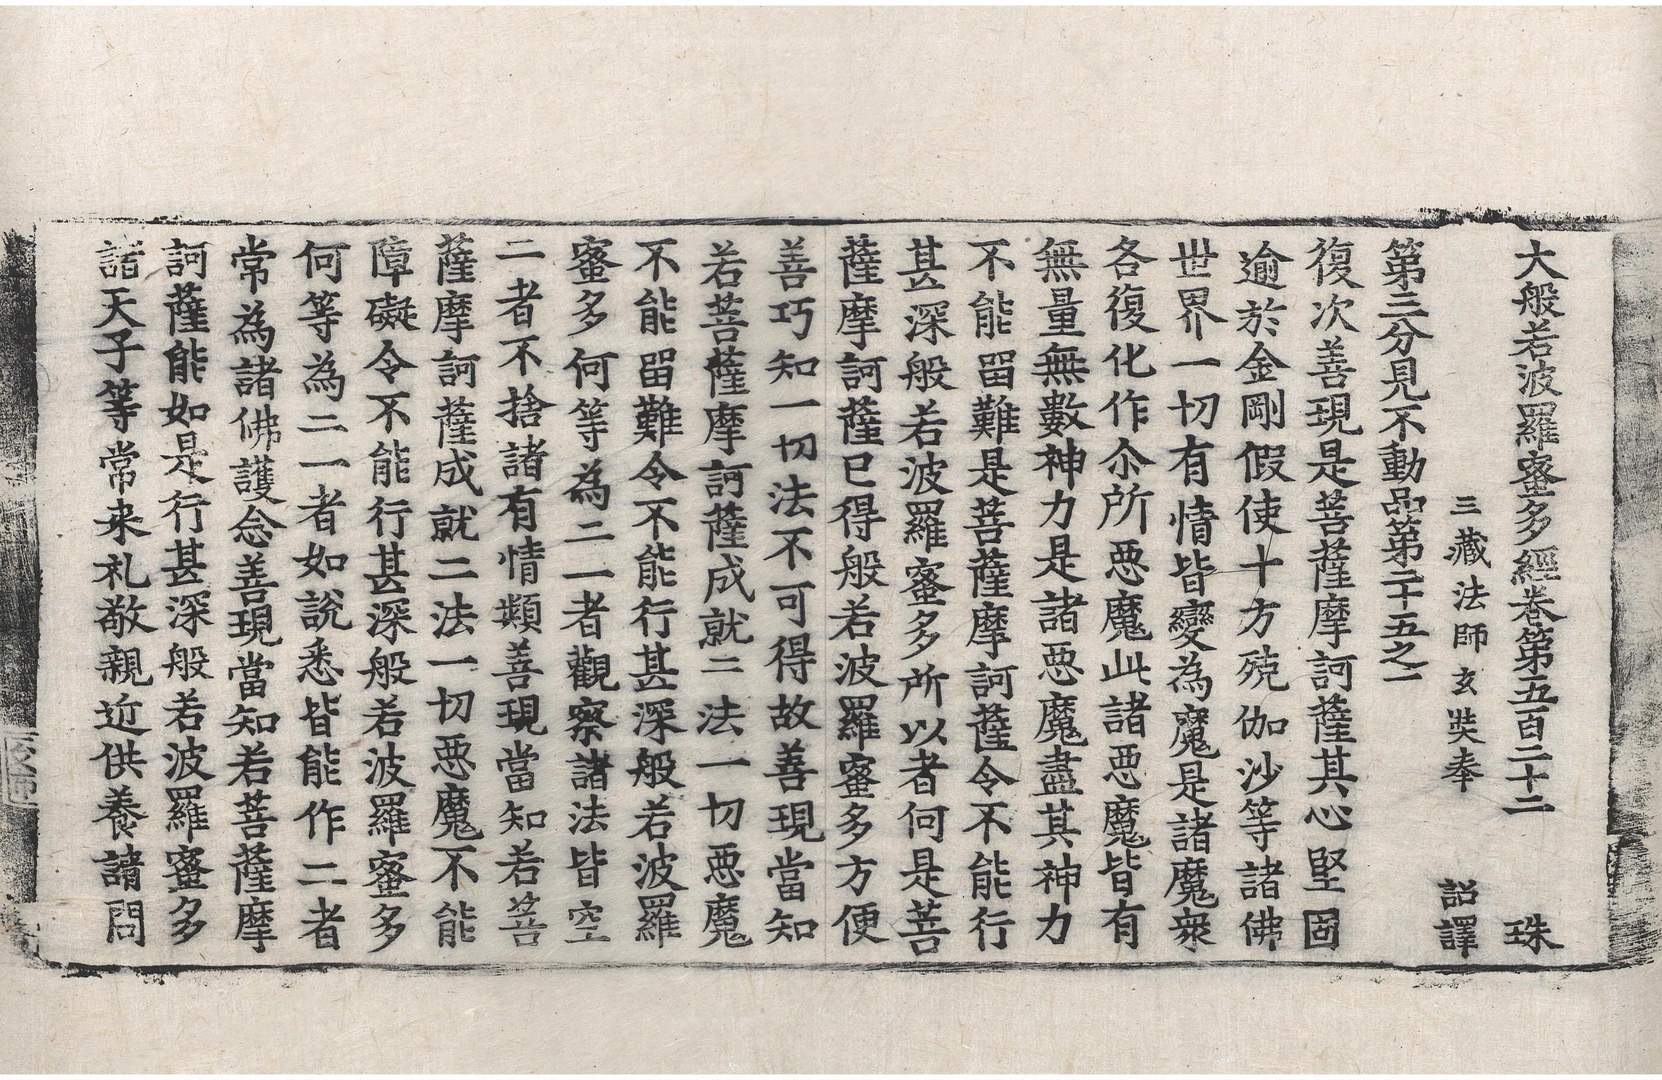 大般若波羅蜜多經卷第五百二十二　珠
三藏法師玄奘奉　詔譯
第三分見不動品第二十五之二
復次善現是菩薩摩訶薩其心堅固
逾於金剛假使十方殑伽沙等諸佛
世界一切有情皆變為魔是諸魔衆
各復化作尒所惡魔此諸惡魔皆有
無量無數神力是諸惡魔盡其神力
不能留難是菩薩摩訶薩令不能行
甚深般若波羅蜜多所以者何是菩
薩摩訶薩已得般若波羅蜜多方便
善巧知一切法不可得故善現當知
若菩薩摩訶薩成就二法一切惡魔
不能留難令不能行甚深般若波羅
蜜多何等為二一者觀察諸法皆空
二者不捨諸有情類善現當知若菩
薩摩訶薩成就二法一切惡魔不能
障礙令不能行甚深般若波羅蜜多
何等為二一者如說悉皆能作二者
常為諸佛護念善現當知若菩薩摩
訶薩能如是行甚深般若波羅蜜多
諸天子等常来礼敬親近供養請問